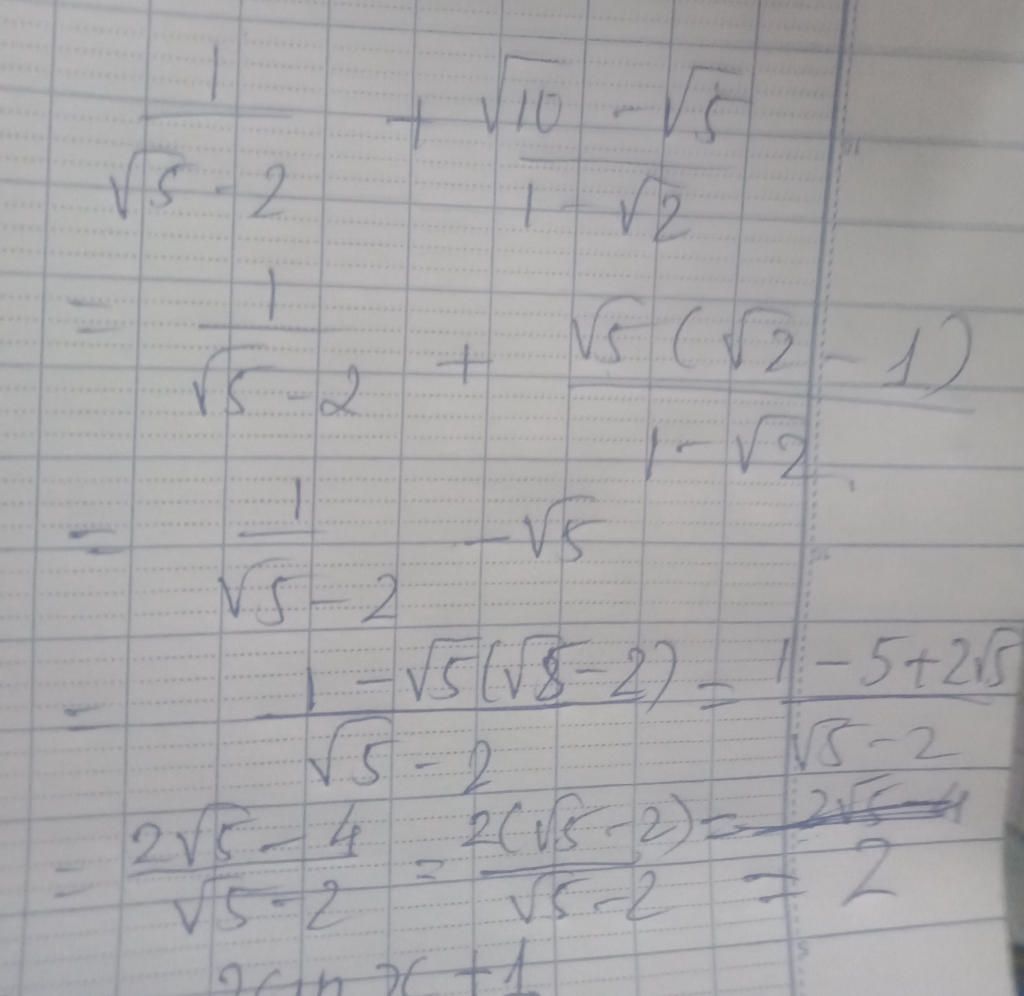 1/(√5 - 2) + (√10 - √5)/(1 - √2)
= 1/(√5 - 2) + √5(√2 - 1)/(1 - √2)
= 1/(√5 - 2) - √5
= (1 - √5(√5 - 2))/(√5 - 2) = (1 - 5 + 2√5)/(√5 - 2)
= (2√5 - 4)/(√5 - 2) = 2(√5 - 2)/(√5 - 2) = 2